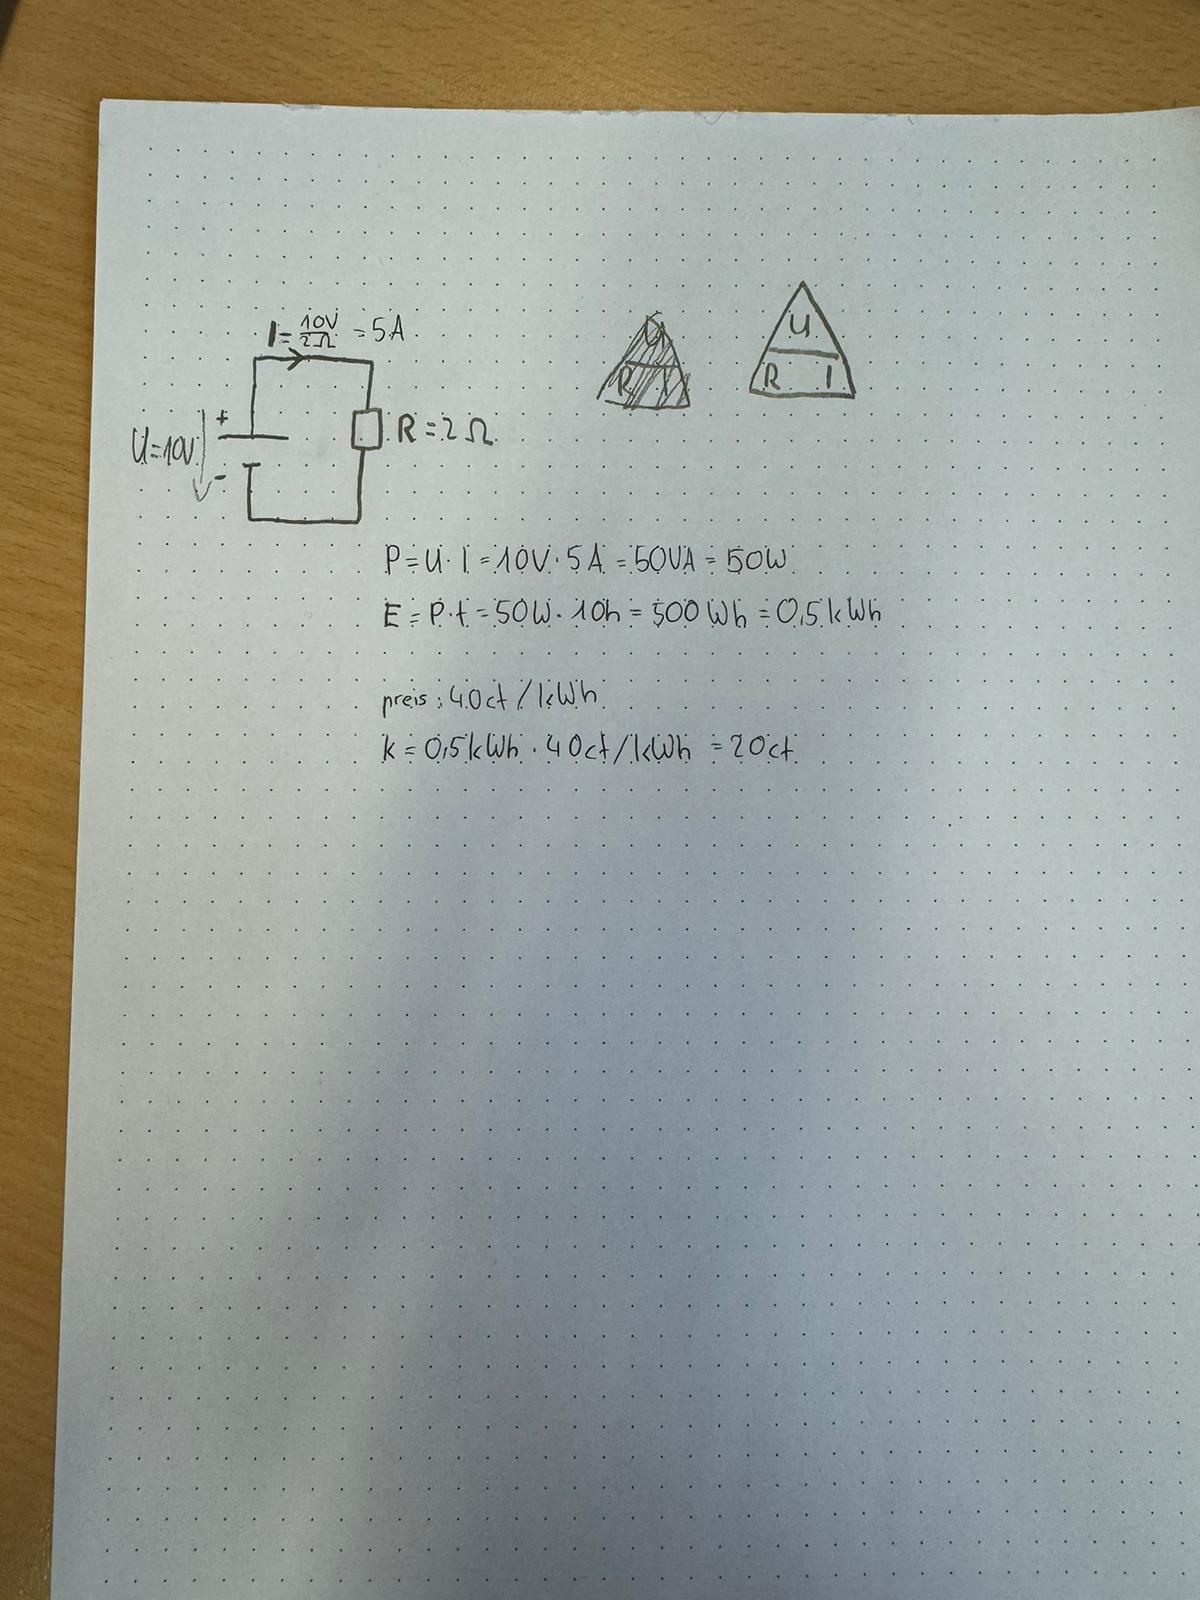 I = 10V/2Ω = 5A
U
R I
U
R I
+
U=10V
-
R = 2Ω
P = U · I = 10V · 5A = 50VA = 50W
E = P·t = 50W · 10h = 500Wh = 0,5kWh
preis: 40ct/kWh
K = 0,5kWh · 40ct/kWh = 20ct